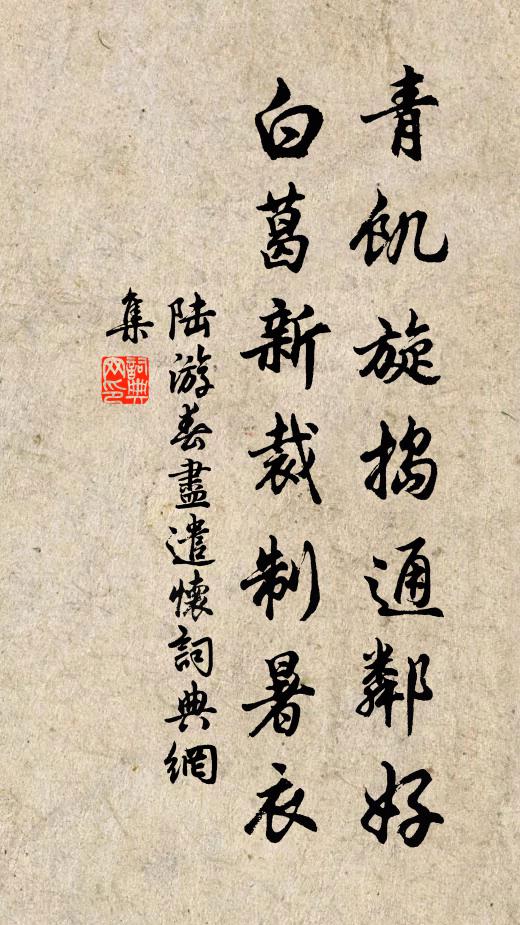 青飢旋搗通鄰好
白葛新裁制暑衣
陆游春盡遣懷詞典網
集
詞典网印